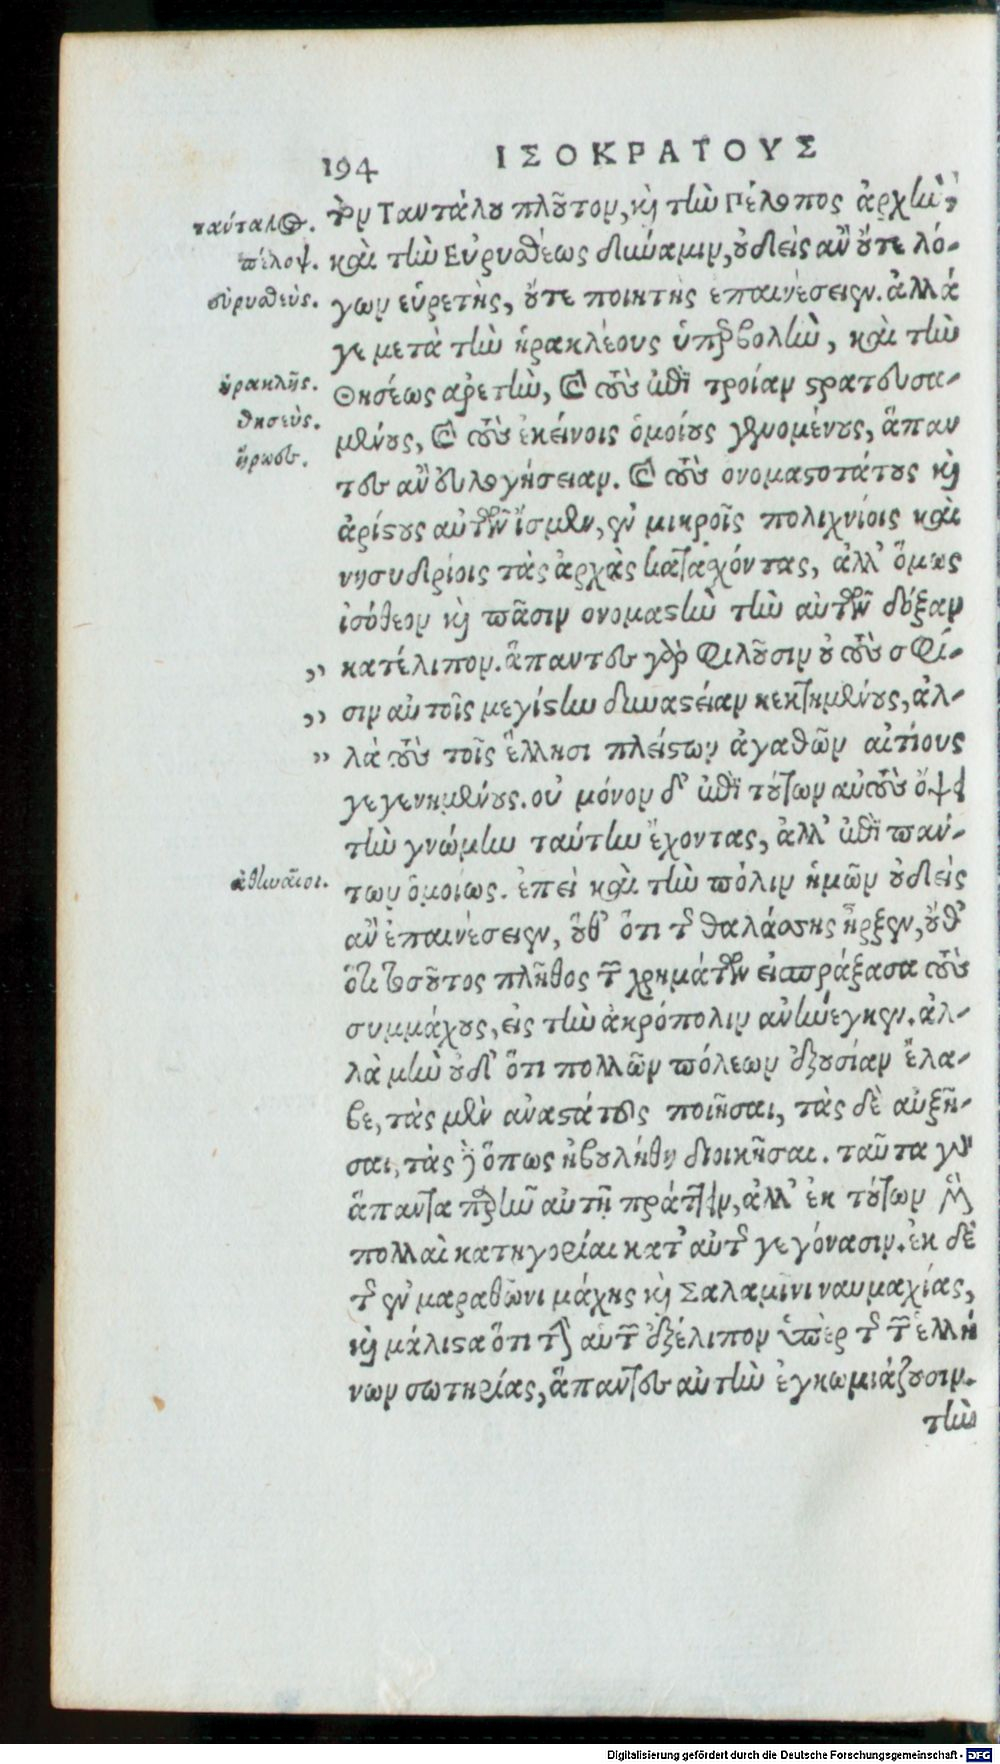 194 ΙΣΟΚΡΑΤΟΥΣ
τὸν Ταντάλου πλοῦτον, καὶ τὴν Πέλοπος ἀρχὴν,
τάνταλος.
καὶ τὴν Εὐρυσθέως δύναμιν, οὐδεὶς ἂν οὔτε λό-
πέλοψ.
γων εὑρετὴς, οὔτε ποιητὴς ἐπαινέσειεν. ἀλλά
εὐρυσθεύς.
γε μετὰ τὴν ἡρακλέους ὑπερβολὴν, καὶ τὴν
Θησέως ἀρετὴν, καὶ τοὺς ἐπὶ τροίαν στρατευσα-
ἡρακλῆς.
μένους, καὶ τοὺς ἐκείνοις ὁμοίους γενομένους, ἅπαν
θησεύς.
τες ἂν εὐλογήσειαν. καὶ τοὺς ονομαστοτάτους καὶ
ἥρωες.
ἀρίστους αὐτῶν ἴσμεν, ἐν μικροῖς πολιχνίοις καὶ
νησυδρίοις τὰς ἀρχὰς κατασχόντας, ἀλλ' ὅμως
ἰσόθεον καὶ πᾶσιν ονομαστὴν τὴν αὐτῶν δόξαν
„ κατέλιπον. ἅπαντες γὰρ φιλοῦσιν οὐ τοὺς σφί-
„ σιν αὐτοῖς μεγίστην δυναστείαν κεκτημένους, ἀλ-
„ λὰ τοὺς τοῖς ἕλλησι πλείστων ἀγαθῶν αἰτίους
γεγενημένους. οὐ μόνον δ' ἐπὶ τούτων αὐτοὺς ὄψει
τὴν γνώμην ταύτην ἔχοντας, ἀλλ' ἐπὶ πάν-
των ὁμοίως. ἐπεὶ καὶ τὴν πόλιν ἡμῶν οὐδεὶς
ἀθηναῖοι.
ἂν ἐπαινέσειεν, οὔθ' ὅτι τῆς θαλάσσης ἦρξεν, οὔθ'
ὅτι τοσοῦτος πλῆθος τῶν χρημάτων εἰσπράξασα τοὺς
συμμάχους, εἰς τὴν ἀκρόπολιν ἀνήνεγκεν. ἀλ-
λὰ μὴν οὐδ' ὅτι πολλῶν πόλεων ἐξουσίαν ἔλα-
βε, τὰς μὲν ἀναστάτους ποιῆσαι, τὰς δὲ αὐξῆ-
σαι, τὰς δὲ ὅπως ἠβουλήθη διοικῆσαι. ταῦτα γὰρ
ἅπαντα παρῆν αὐτῇ πράττειν, ἀλλ' ἐκ τούτων μὲν
πολλαὶ κατηγορίαι κατ' αὐτῆς γεγόνασιν. ἐκ δὲ
τῆς ἐν μαραθῶνι μάχης καὶ Σαλαμῖνι ναυμαχίας,
καὶ μάλιστα ὅτι τὴν αὐτῶν ἐξέλιπον ὑπὲρ τῆς τῶν ἑλλή
νων σωτηρίας, ἅπαντες αὐτὴν ἐγκωμιάζουσιν.
τὴν
Digitalisierung gefördert durch die Deutsche Forschungsgemeinschaft - DFG